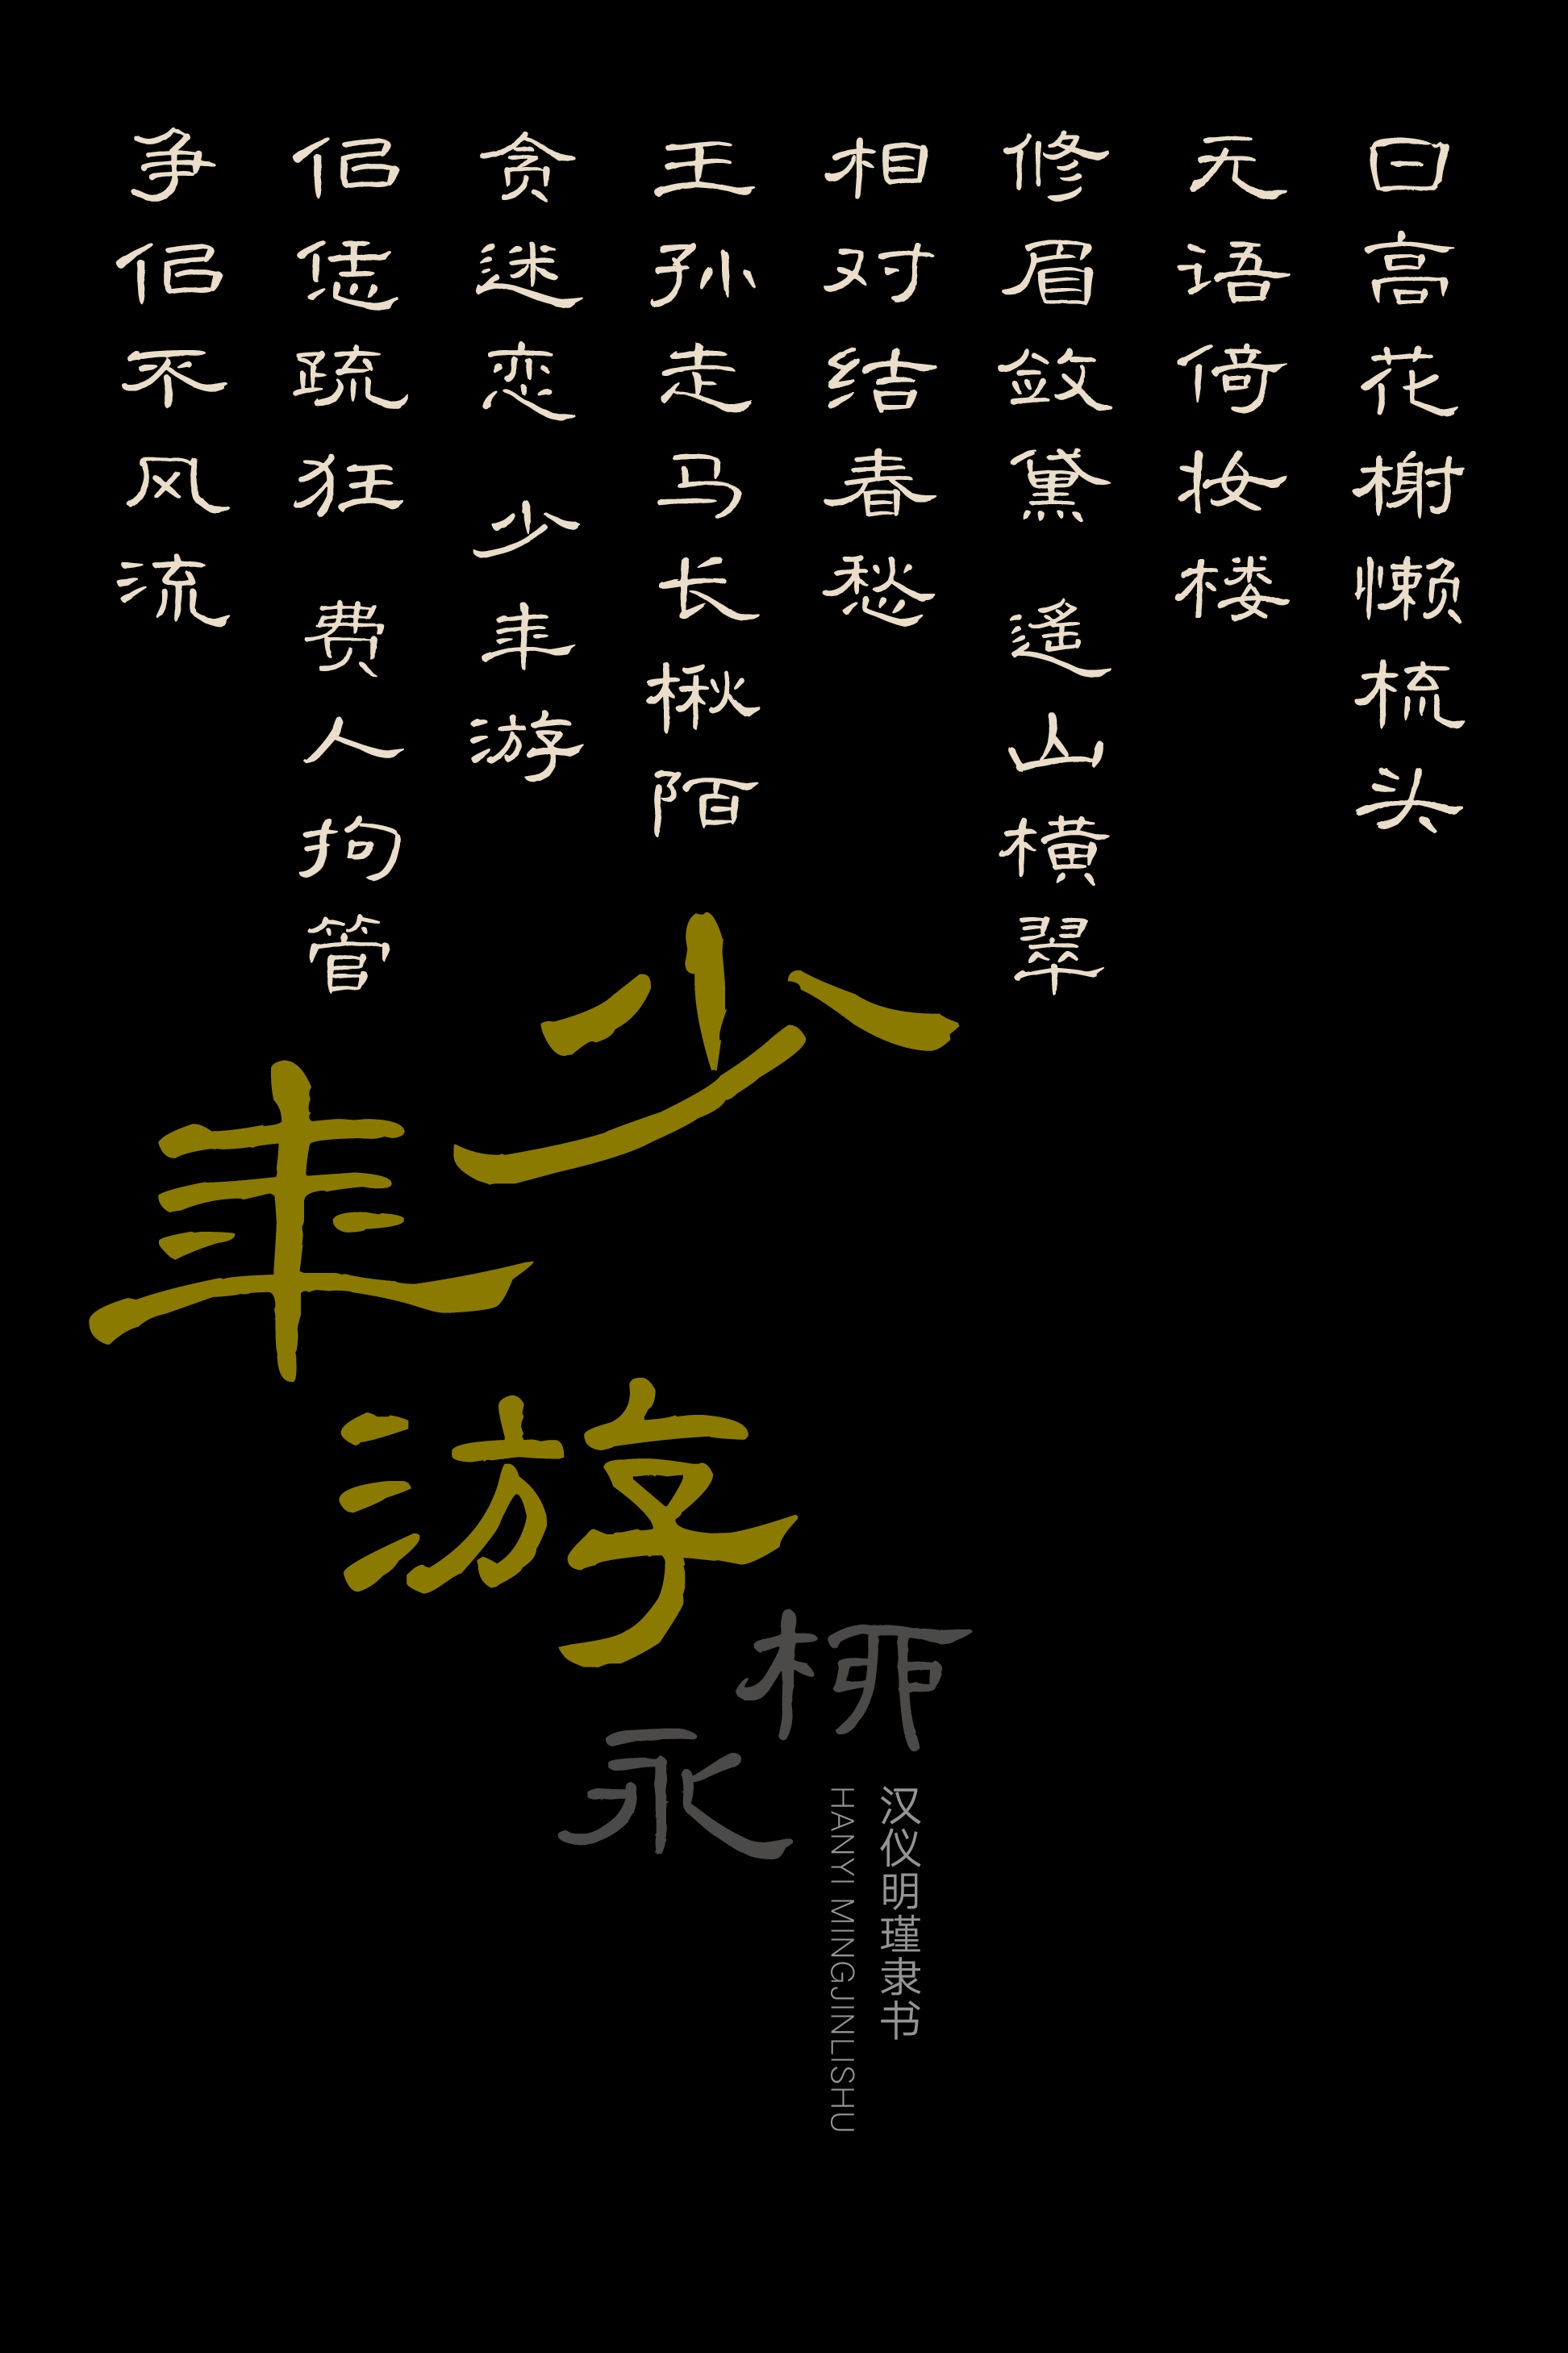 日高花榭懒梳头
无语倚妆楼
修眉敛黛 遥山横翠
相对结春愁
王孙走马长楸陌
贪迷恋 少年游
似恁疏狂 费人拘管
争似不风流
少年游
柳永
汉仪明瑾隶书
HANYI MINGJINLISHU